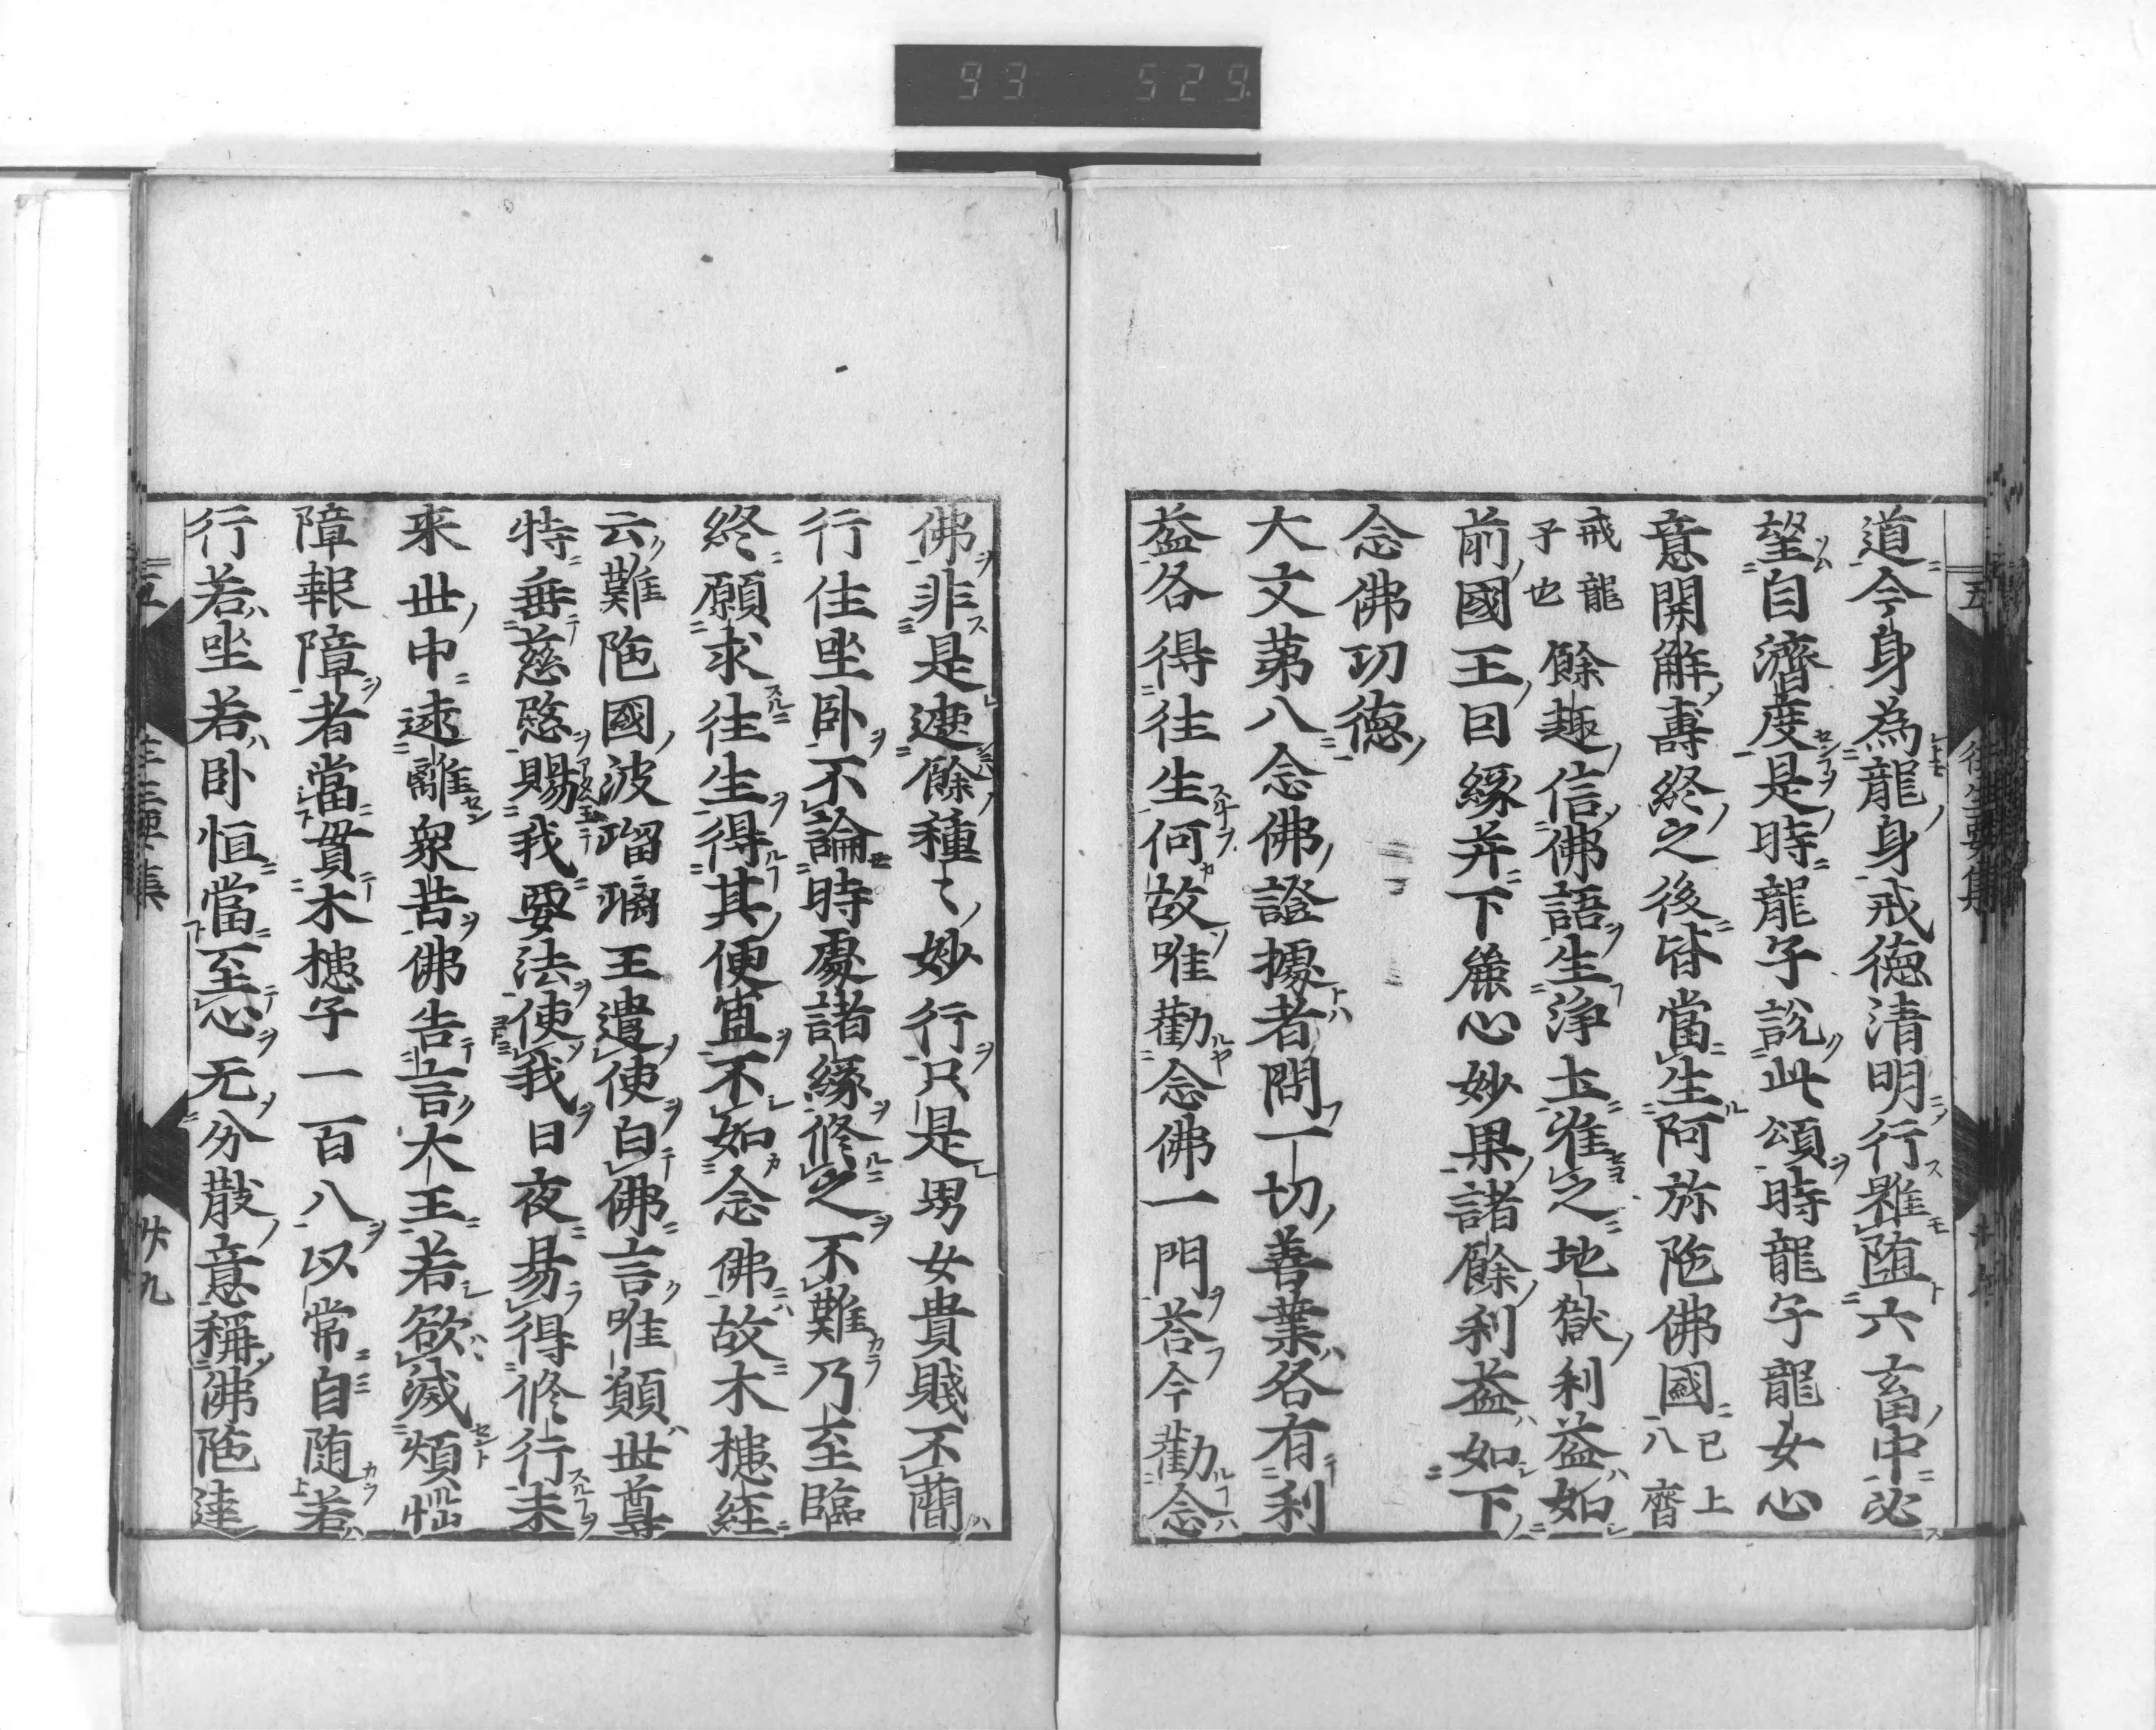 93 529.
道今身為龍身戒徳清明行雖堕六畜中必
望自濟度是時龍子説此頌時龍子龍女心
意開解壽終之後皆當生阿弥陁佛國已上八齋
戒龍子也餘趣信佛語生淨土准之地獄利益如
前國王因縁并下麁心妙果諸餘利益如下
念佛功徳
大文第八念佛證據者問一切善業各有利
益各得往生何故唯勸念佛一門荅今勸念
佛非是遮餘種〻妙行只是男女貴賤不蕳
行住坐卧不論時處諸縁修之不難乃至臨
終願求往生得其便宜不如念佛故木槵経
云難陁國波瑠璃王遣使白佛言唯願世尊
特垂慈愍賜我要法使我日夜易得修行未
来世中遠離衆苦佛告言大王若欲滅煩悩
障報障者當貫木槵子一百八以常自随若
行若坐若卧恒當至心无分散意稱佛陁達
五
往生要集
卅九